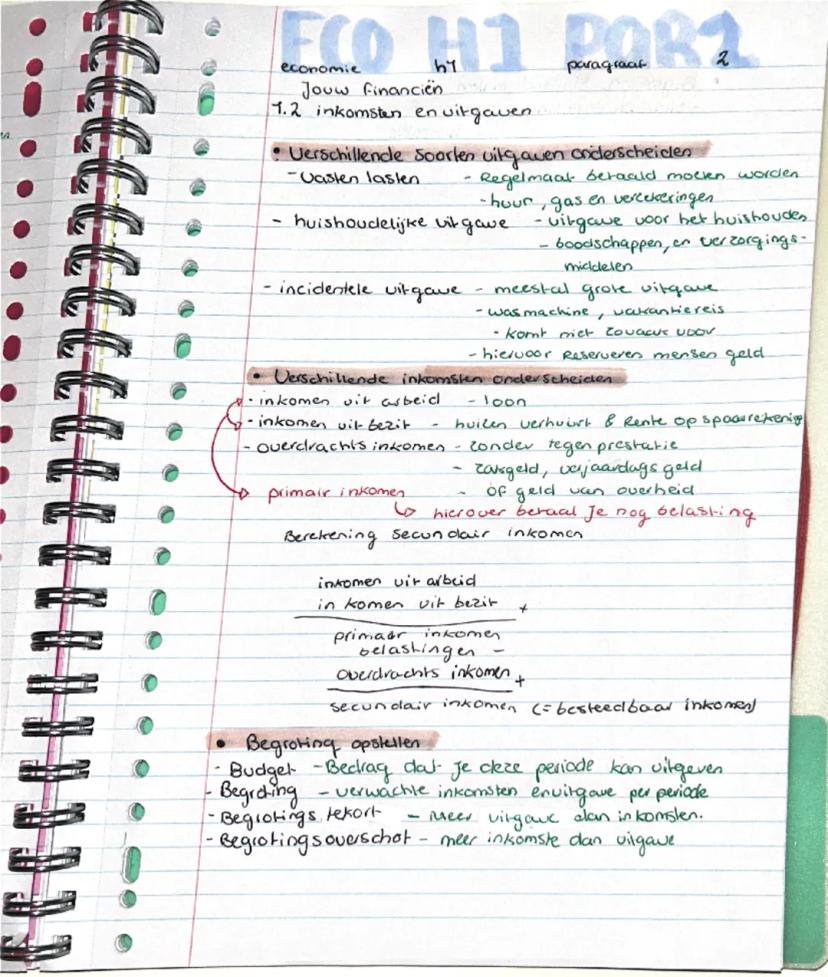 ECO H1 PAR1
economie h1 paragraaf 2
Jouw financiën
1.2 inkomsten en uitgaven
• Verschillende soorten uitgaven onderscheiden
- Vasten lasten - Regelmaat betaald moeten worden
- huur, gas en verzekeringen
- huishoudelijke uitgave - uitgave voor het huishouden
- boodschappen, en verzorgings-
middelen
- incidentele uitgave - meestal grote uitgave
- wasmachine, vakantiereis
- komt niet zovaak voor
- hiervoor Reserveren mensen geld
• Verschillende inkomsten onderscheiden
- inkomen uit arbeid - loon
- inkomen uit bezit - huizen verhuurt & Rente op spaarrekening
- overdrachts inkomen - zonder tegen prestatie
- zakgeld, verjaardags geld
primair inkomen - of geld van overheid
↳ hierover betaal je nog belasting
Berekening secundair inkomen
inkomen uit arbeid
in komen uit bezit +
primair inkomen
belastingen -
overdrachts inkomen +
secundair inkomen (= besteedbaar inkomen)
• Begroting opstellen
- Budget - Bedrag dat je deze periode kan uitgeven
- Begroting - verwachte inkomsten en uitgave per periode
- Begrotings tekort - Meer uitgave dan inkomsten.
- Begrotingsoverschot - meer inkomste dan uitgave